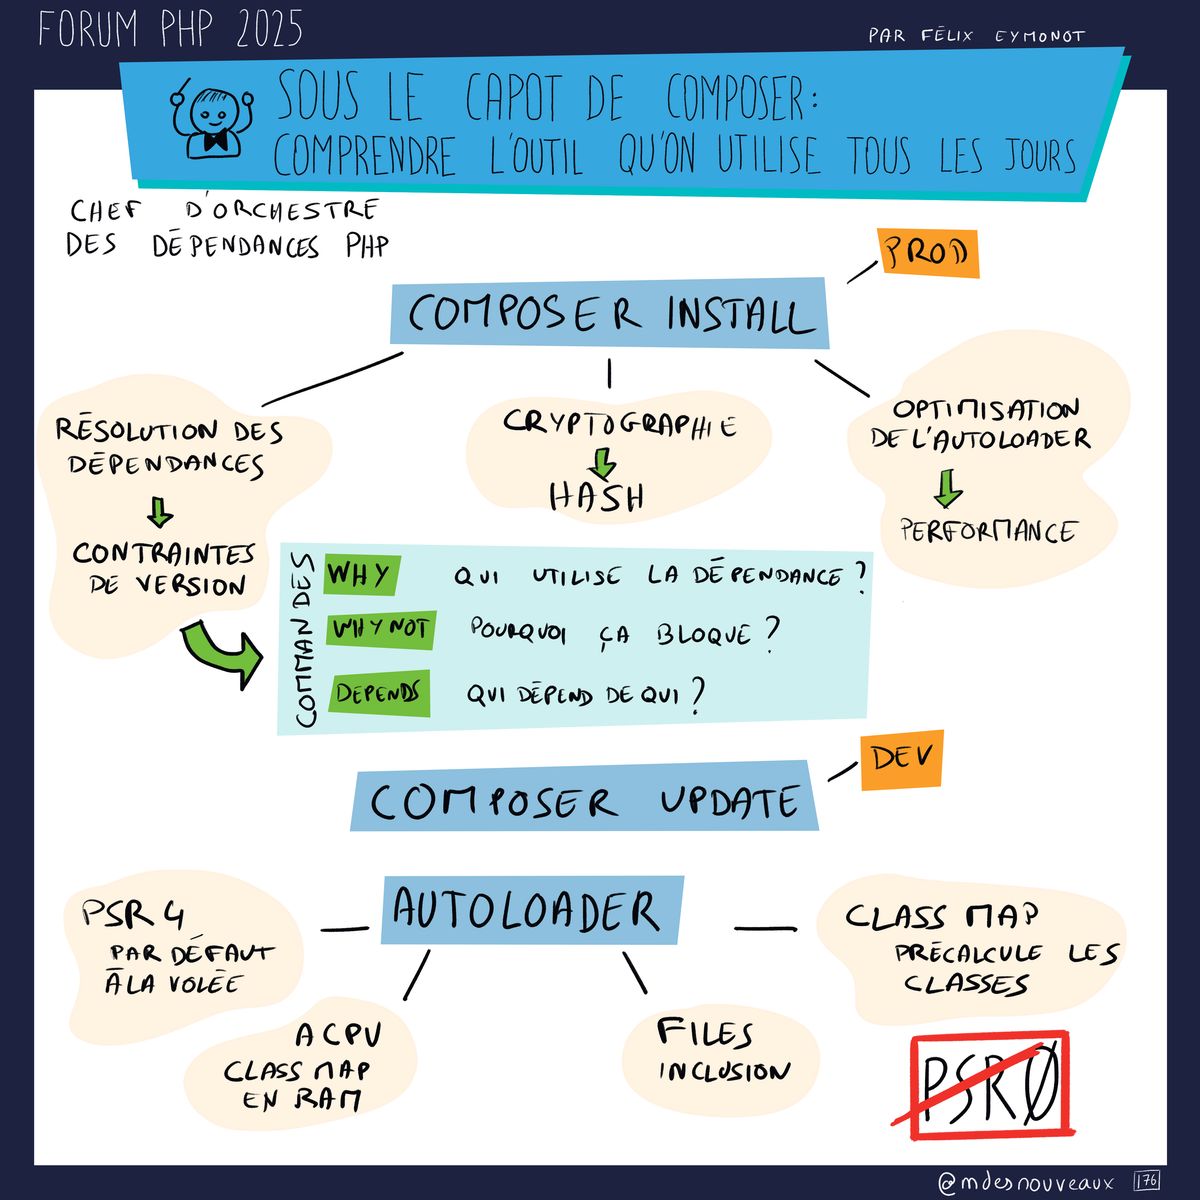 FORUM PHP 2025
PAR FÉLIX EYMONOT
SOUS LE CAPOT DE COMPOSER:
COMPRENDRE L'OUTIL QU'ON UTILISE TOUS LES JOURS
CHEF D'ORCHESTRE
DES DÉPENDANCES PHP
PROD
COMPOSER INSTALL
RÉSOLUTION DES
DÉPENDANCES
CONTRAINTES
DE VERSION
CRYPTOGRAPHIE
HASH
OPTIMISATION
DE L'AUTOLOADER
PERFORMANCE
COMMANDES
WHY QUI UTILISE LA DÉPENDANCE ?
WHY NOT POURQUOI ÇA BLOQUE ?
DEPENDS QUI DÉPEND DE QUI ?
DEV
COMPOSER UPDATE
AUTOLOADER
PSR 4
PAR DÉFAUT
À LA VOLÉE
ACPU
CLASS MAP
EN RAM
FILES
INCLUSION
CLASS MAP
PRÉCALCULE LES
CLASSES
PSR0
@mdesnouveaux 176